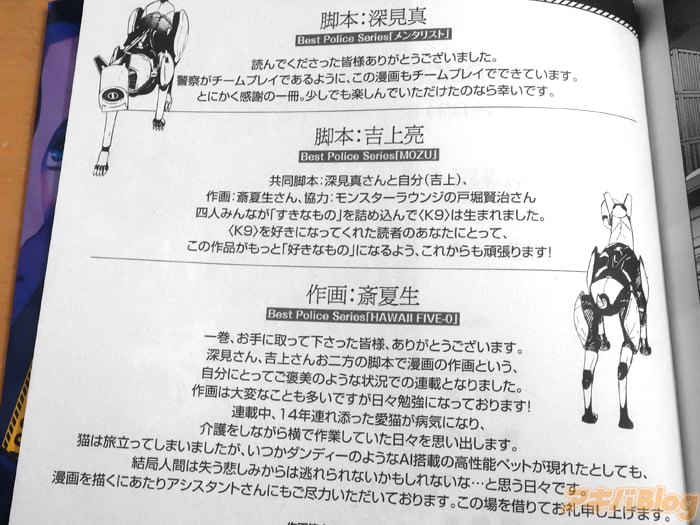 脚本：深見真
Best Police Series「メンタリスト」
読んでくださった皆様ありがとうございました。
警察がチームプレイであるように、この漫画もチームプレイでできています。
とにかく感謝の一冊。少しでも楽しんでいただけたのなら幸いです。
脚本：吉上亮
Best Police Series「MOZU」
共同脚本：深見真さんと自分（吉上）、
作画：斎夏生さん、協力：モンスターラウンジの戸堀賢治さん
四人みんなが「すきなもの」を詰め込んで〈K9〉は生まれました。
〈K9〉を好きになってくれた読者のあなたにとって、
この作品がもっと「好きなもの」になるよう、これからも頑張ります！
作画：斎夏生
Best Police Series「HAWAII FIVE-0」
一巻、お手に取って下さった皆様、ありがとうございます。
深見さん、吉上さんお二方の脚本で漫画の作画という、
自分にとってご褒美のような状況での連載となりました。
作画は大変なことも多いですが日々勉強になっております！
連載中、14年連れ添った愛猫が病気になり、
介護をしながら横で作業していた日々を思い出します。
猫は旅立ってしまいましたが、いつかダンディーのようなAI搭載の高性能ペットが現れたとしても、
結局人間は失う悲しみからは逃れられないかもしれないな…と思う日々です。
漫画を描くにあたりアシスタントさんにもご尽力いただいております。この場を借りてお礼申し上げます。
アキバBlog